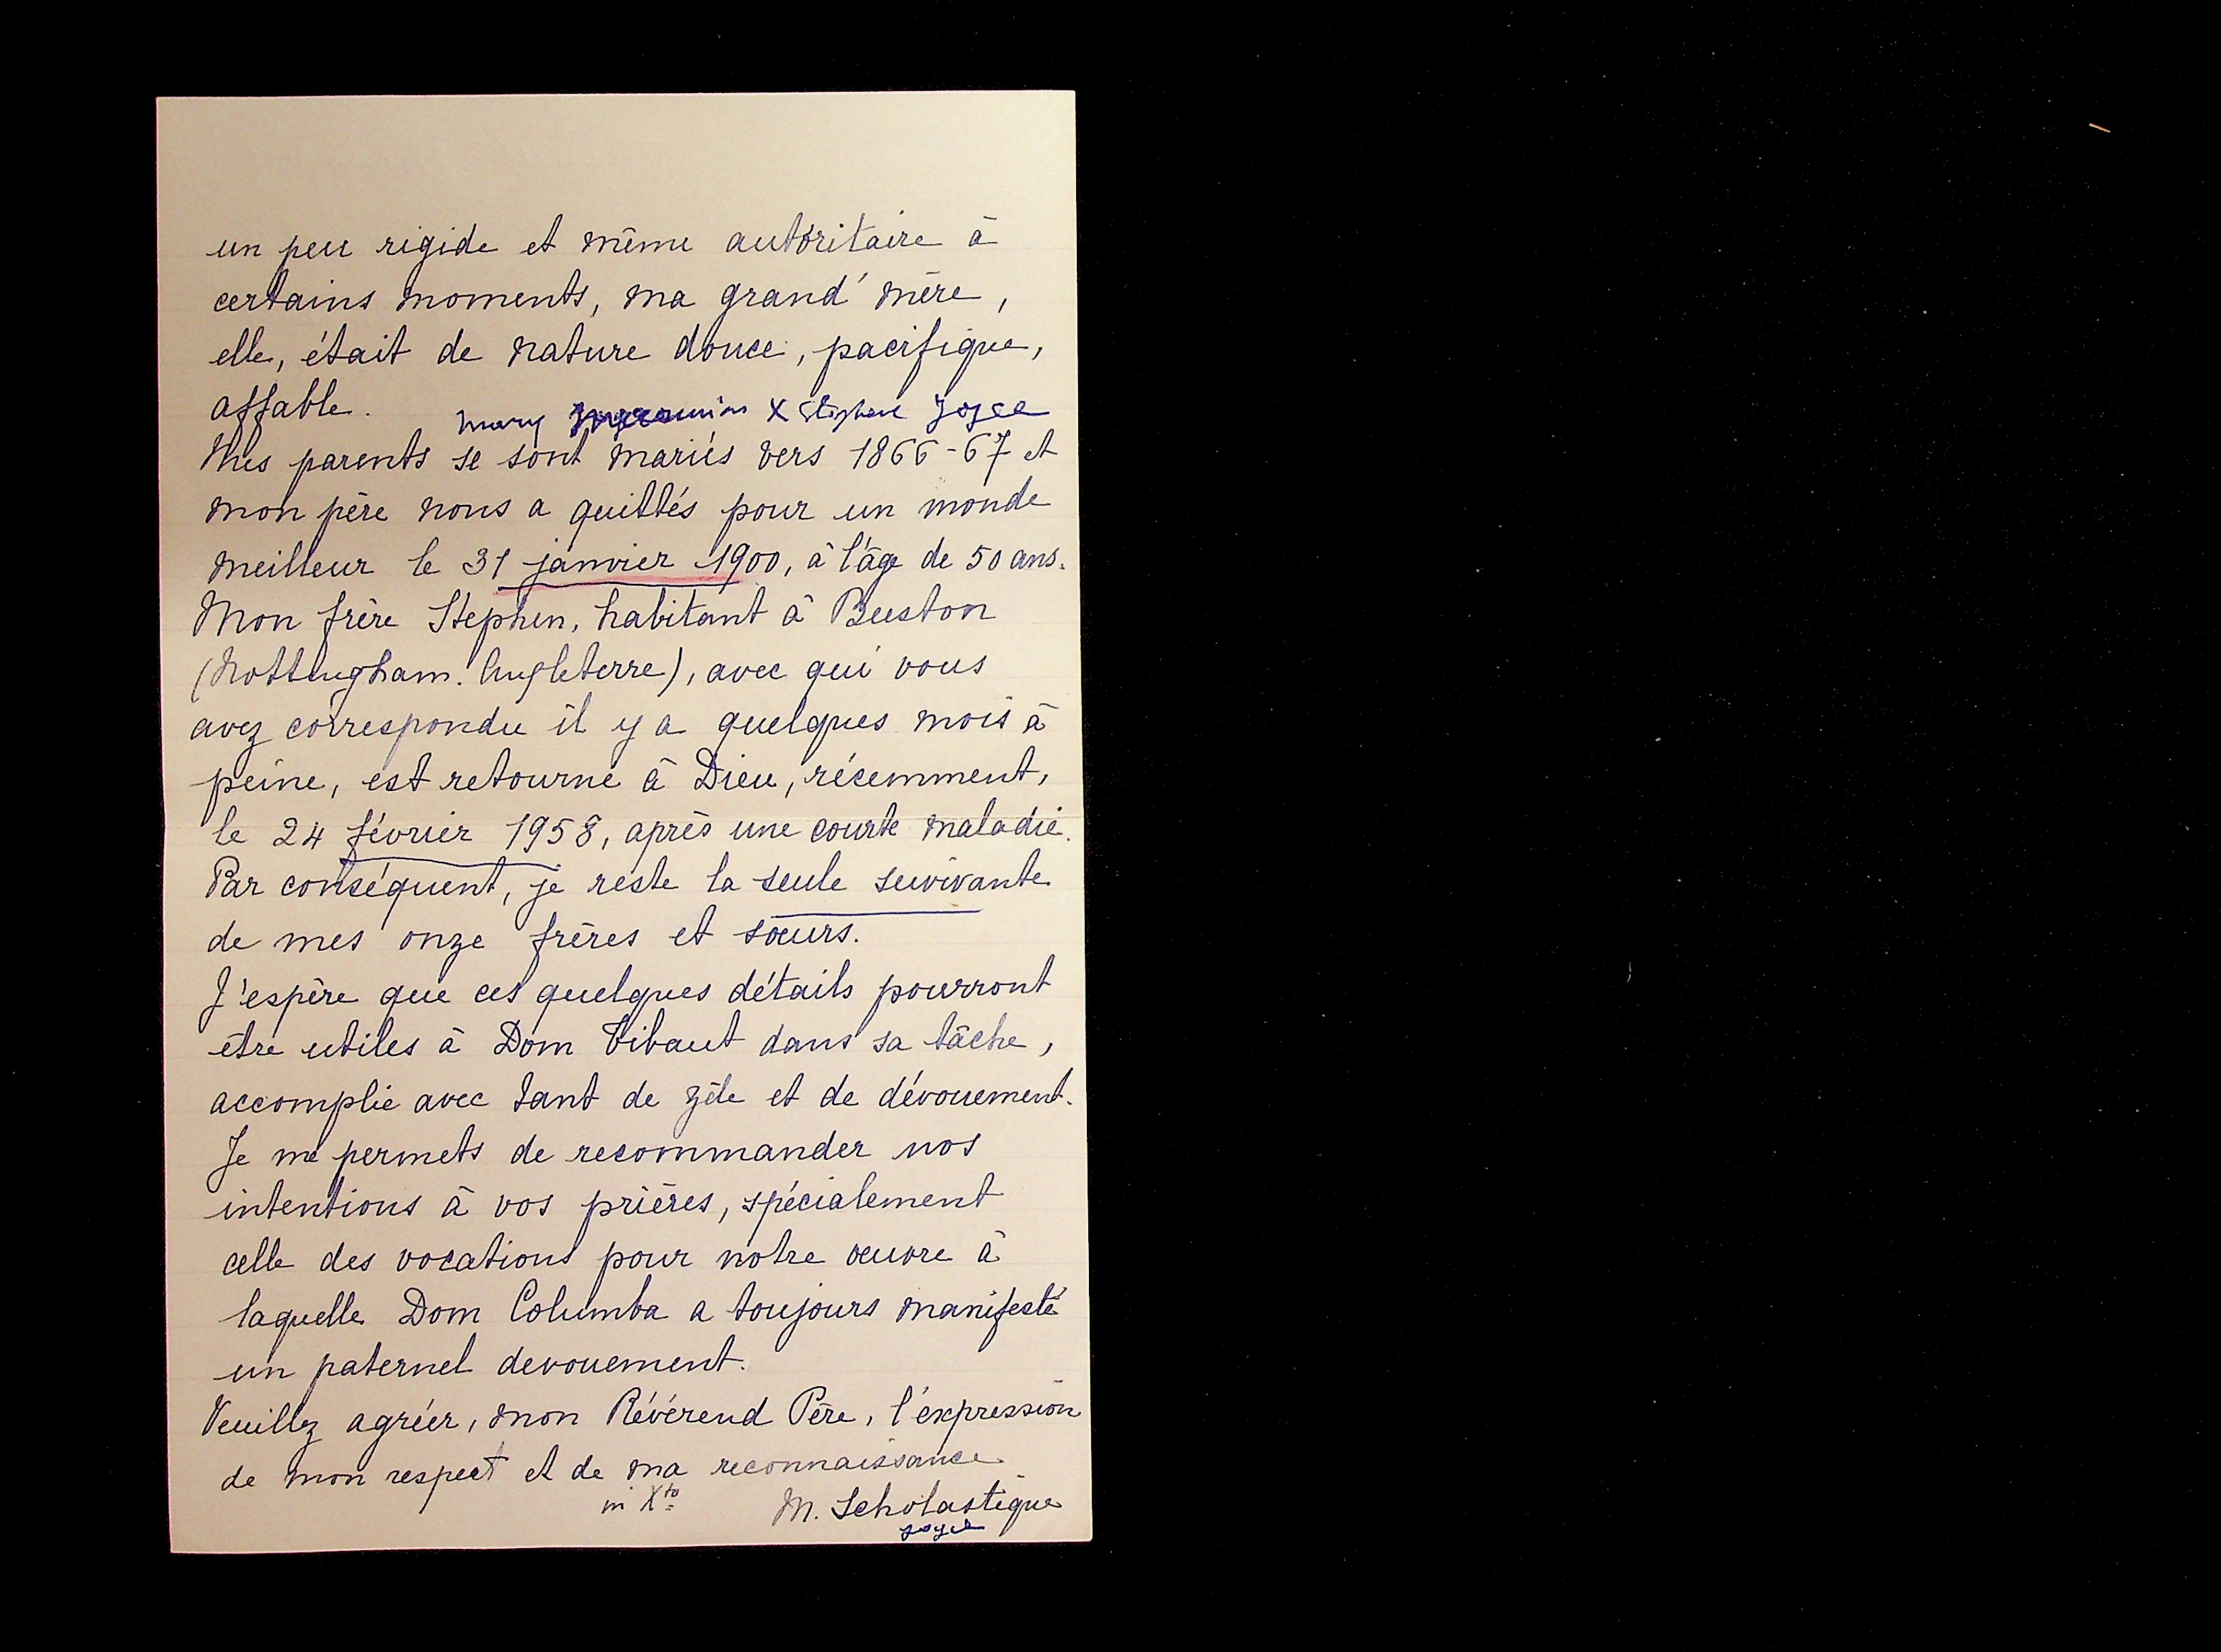 un peu rigide et même autoritaire à
certains moments, ma grand'mère,
elle, était de nature douce, pacifique,
affable.
Mary X Stephen Joyce
Mes parents se sont mariés vers 1866-67 et
mon père nous a quittés pour un monde
meilleur le 31 janvier 1900, à l'âge de 50 ans.
Mon frère Stephen, habitant à Beeston
(Nottingham. Angleterre), avec qui vous
avez correspondu il y a quelques mois à
peine, est retourné à Dieu, récemment,
le 24 février 1958, après une courte maladie.
Par conséquent, je reste la seule survivante
de mes onze frères et sœurs.
J'espère que ces quelques détails pourront
être utiles à Dom Tibaut dans sa tâche,
accomplie avec tant de zèle et de dévouement.
Je me permets de recommander nos
intentions à vos prières, spécialement
celle des vocations pour notre œuvre à
laquelle Dom Columba a toujours manifesté
un paternel devouement.
Veuillez agréer, mon Révérend Père, l'expression
de mon respect et de ma reconnaissance
in Xto
M. Scholastique
Joyce